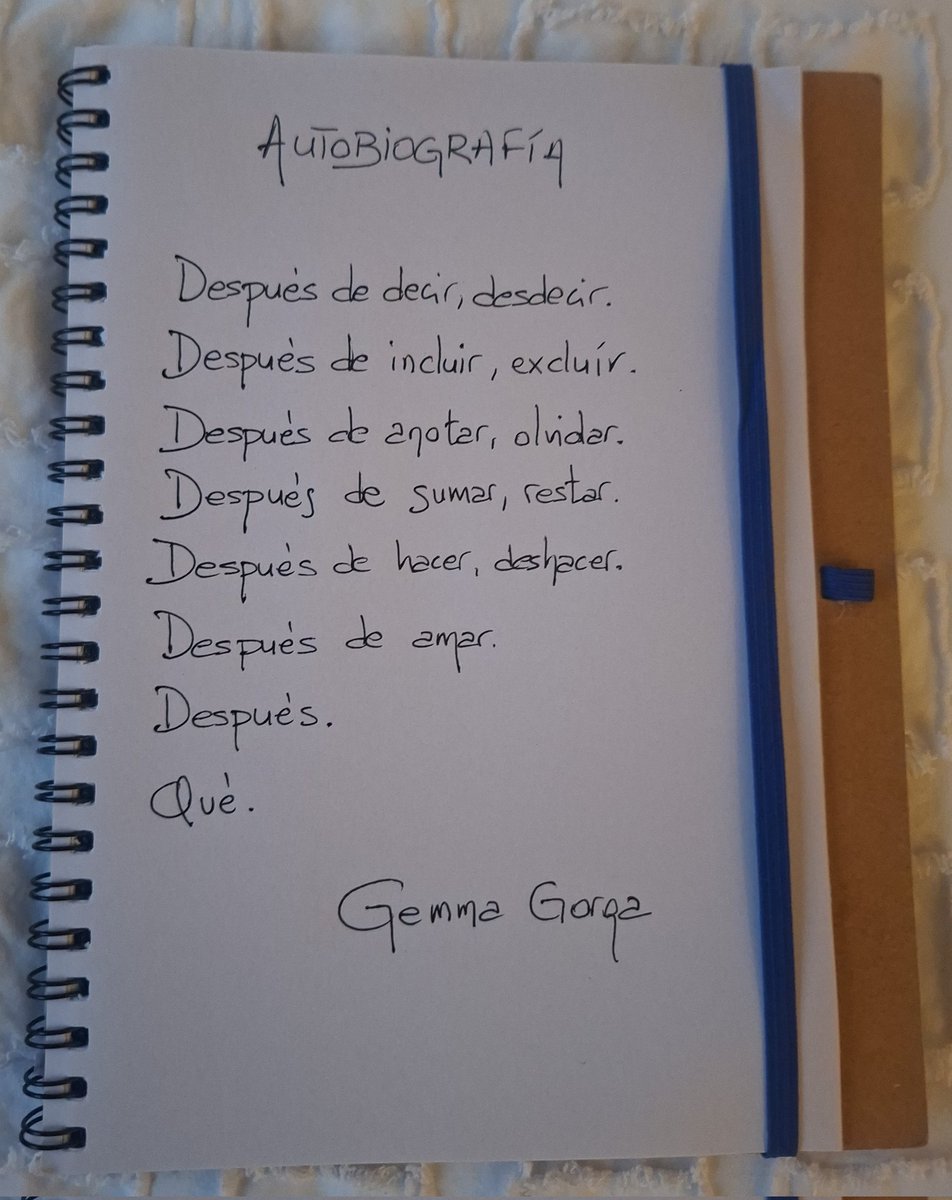 AUTOBIOGRAFÍA
Después de decir, desdecir.
Después de incluir, excluír.
Después de anotar, olvidar.
Después de sumar, restar.
Después de hacer, deshacer.
Después de amar.
Después.
Qué.
Gemma Gorga